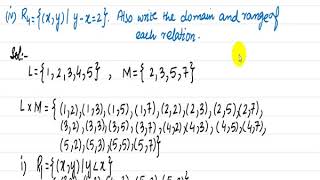 (iv) R₄={(x,y)| y-x=2}. Also write the domain and range of
each relation.
Sol:-
L={1,2,3,4,5} , M={2,3,5,7}
L×M={(1,2),(1,3),(1,5),(1,7),(2,2),(2,3),(2,5),(2,7),
(3,2),(3,3),(3,5),(3,7),(4,2),(4,3),(4,5),(4,7),
(5,2),(5,3),(5,5),(5,7)}
i) R₁={(x,y)|y<x}